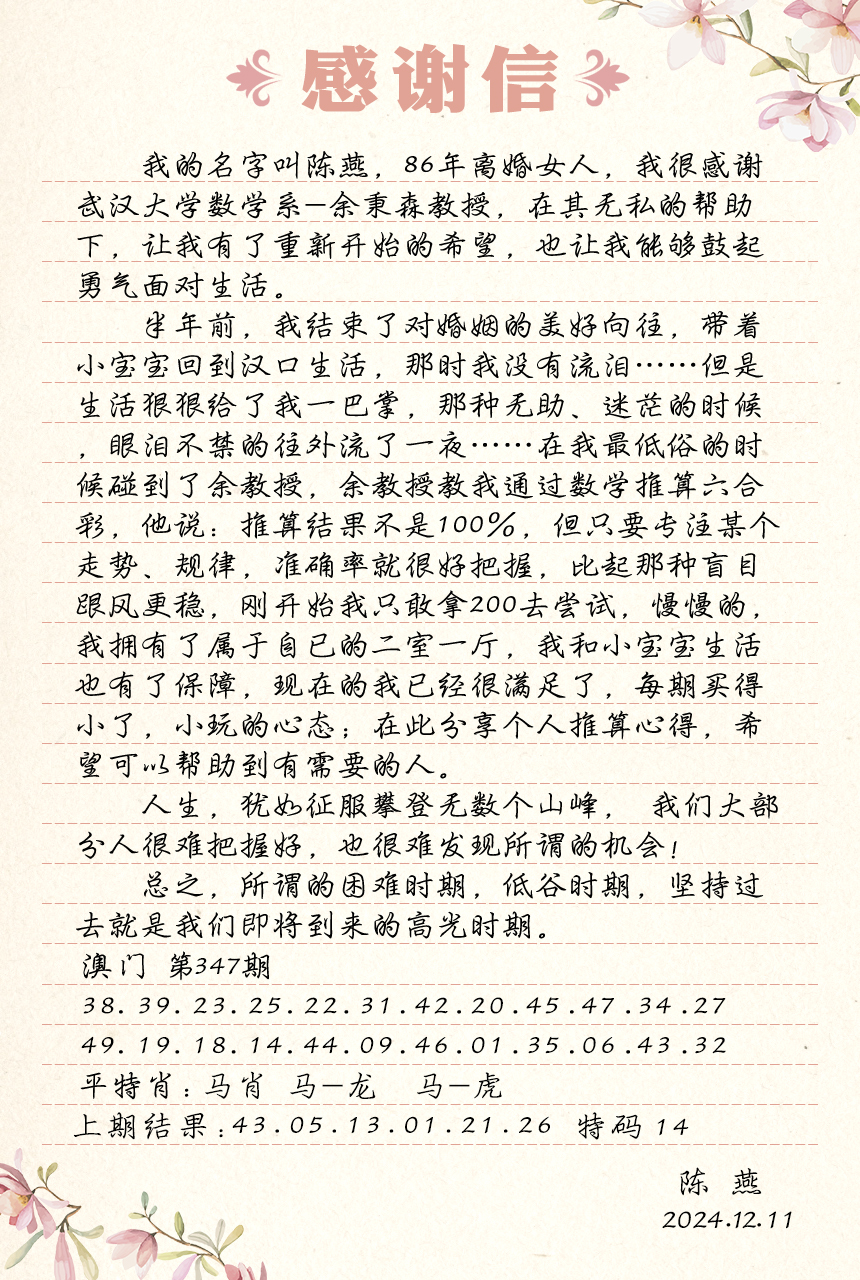 感谢信
我的名字叫陈燕，86年离婚女人，我很感谢
武汉大学数学系—余秉森教授，在其无私的帮助
下，让我有了重新开始的希望，也让我能够鼓起
勇气面对生活。
半年前，我结束了对婚姻的美好向往，带着
小宝宝回到汉口生活，那时我没有流泪……但是
生活狠狠给了我一巴掌，那种无助、迷茫的时候
，眼泪不禁的往外流了一夜……在我最低俗的时
候碰到了余教授，余教授教我通过数学推算六合
彩，他说：推算结果不是100%，但只要专注某个
走势、规律，准确率就很好把握，比起那种盲目
跟风更稳，刚开始我只敢拿200去尝试，慢慢的，
我拥有了属于自已的二室一厅，我和小宝宝生活
也有了保障，现在的我已经很满足了，每期买得
小了，小玩的心态；在此分享个人推算心得，希
望可以帮助到有需要的人。
人生，犹如征服攀登无数个山峰， 我们大部
分人很难把握好，也很难发现所谓的机会！
总之，所谓的困难时期，低谷时期，坚持过
去就是我们即将到来的高光时期。
澳门 第347期
38.39.23.25.22.31.42.20.45.47.34.27
49.19.18.14.44.09.46.01.35.06.43.32
平特肖：马肖 马—龙 马—虎
上期结果：43.05.13.01.21.26 特码 14
陈 燕
2024.12.11